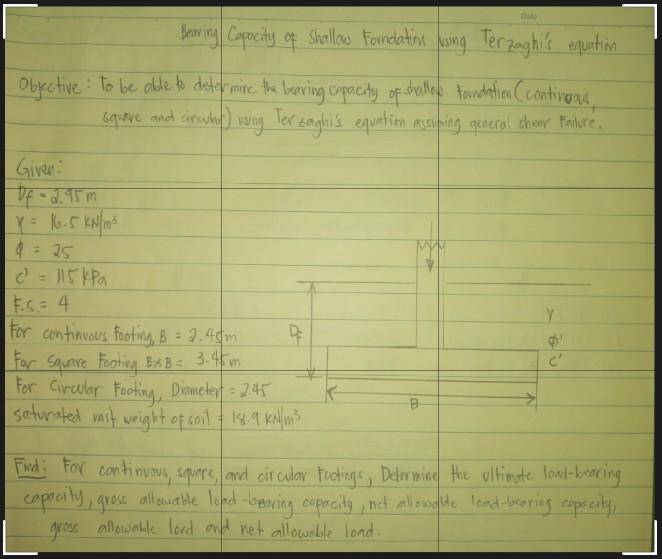 Date:
Bearing Capacity of Shallow Foundation using Terzaghi's equation
Objective: To be able to determine the bearing capacity of shallow foundation (continous,
square and circular) using Terzaghi's equation assuming general shear failure.
Given:
Df = 2.95 m
γ = 16.5 KN/m³
φ = 25
c' = 115 KPa
F.S. = 4
For continuous footing, B = 2.45m
For Square Footing BxB = 3.45m
For Circular Footing, Diameter = 2.45
saturated unit weight of soil = 18.9 KN/m³
Df
γ
φ'
c'
B
Find: For continuous, square, and circular footings, Determine the ultimate load-bearing
capacity, gross allowable load-bearing capacity, net allowable load-bearing capacity,
gross allowable load and net allowable load.